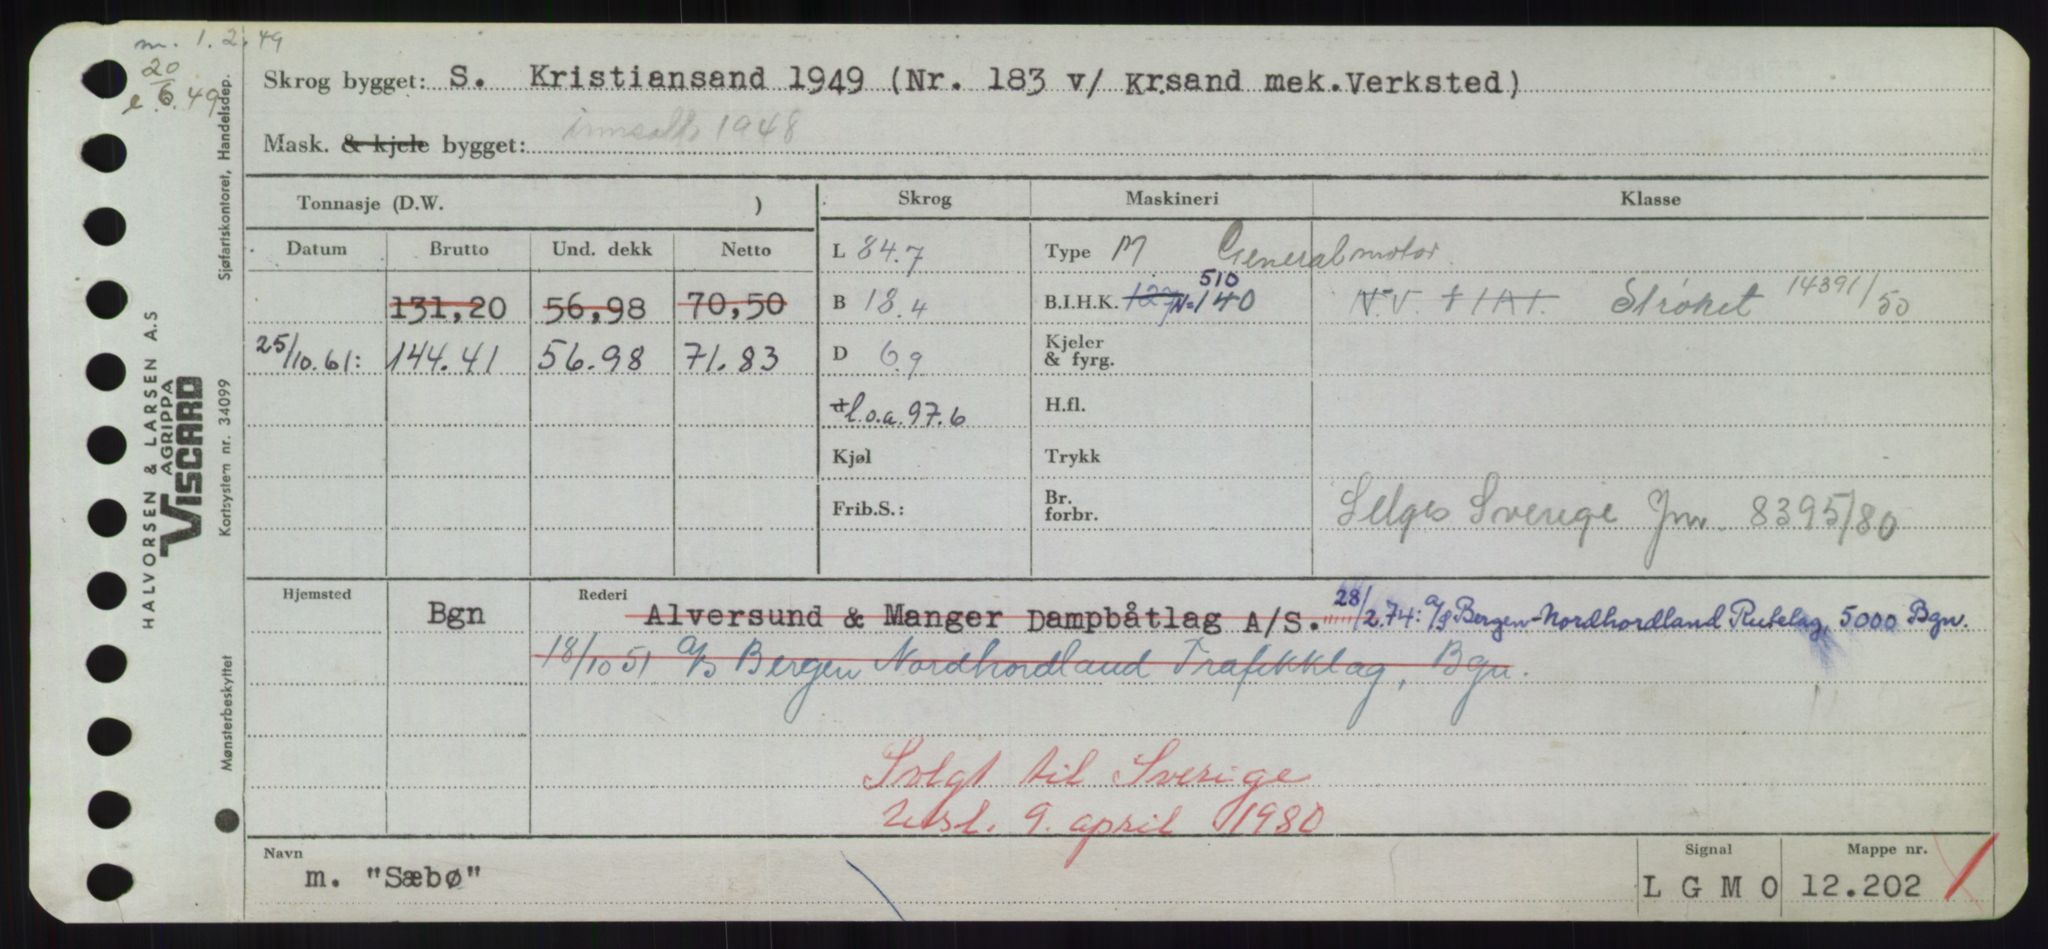 m. 1.2.49
20
e. 6. 49
Skrog bygget: S. Kristiansand 1949 (Nr. 183 v/ Krsand mek.Verksted)
Mask. & kjele bygget: 1948
Tonnasje (D.W. )
Skrog
Maskineri
Klasse
Datum Brutto Und. dekk Netto
L 84.7
Type M General motor
131,20 56,98 70,50
B 18.4
510
B.I.H.K. 127 N=140
N.V. + 1A1. Strøket 14391/50
25/10.61: 144.41 56.98 71.83
D 6.9
Kjeler
& fyrg.
d l.o.a. 97.6
H.fl.
Kjøl
Trykk
Frib.S.:
Br.
forbr.
Selges Sverige Jnr. 8395/80
Hjemsted
Bgn
Rederi
Alversund & Manger Dampbåtlag A/S. """ 28/2.74: A/S Bergen-Nordhordland Rutelag, 5000 Bgn.
18/10 51 A/S Bergen Nordhordland Trafikklag, Bgn.
Solgt til Sverige
Utsl. 9. april 1980
Navn
m. "Sæbø"
Signal
L G M O
Mappe nr.
12.202
Sjøfartskontoret, Handelsdep.
HALVORSEN & LARSEN A.S
AGRIPPA
VISCARD
Kortsystem nr. 34099
Mønsterbeskyttet